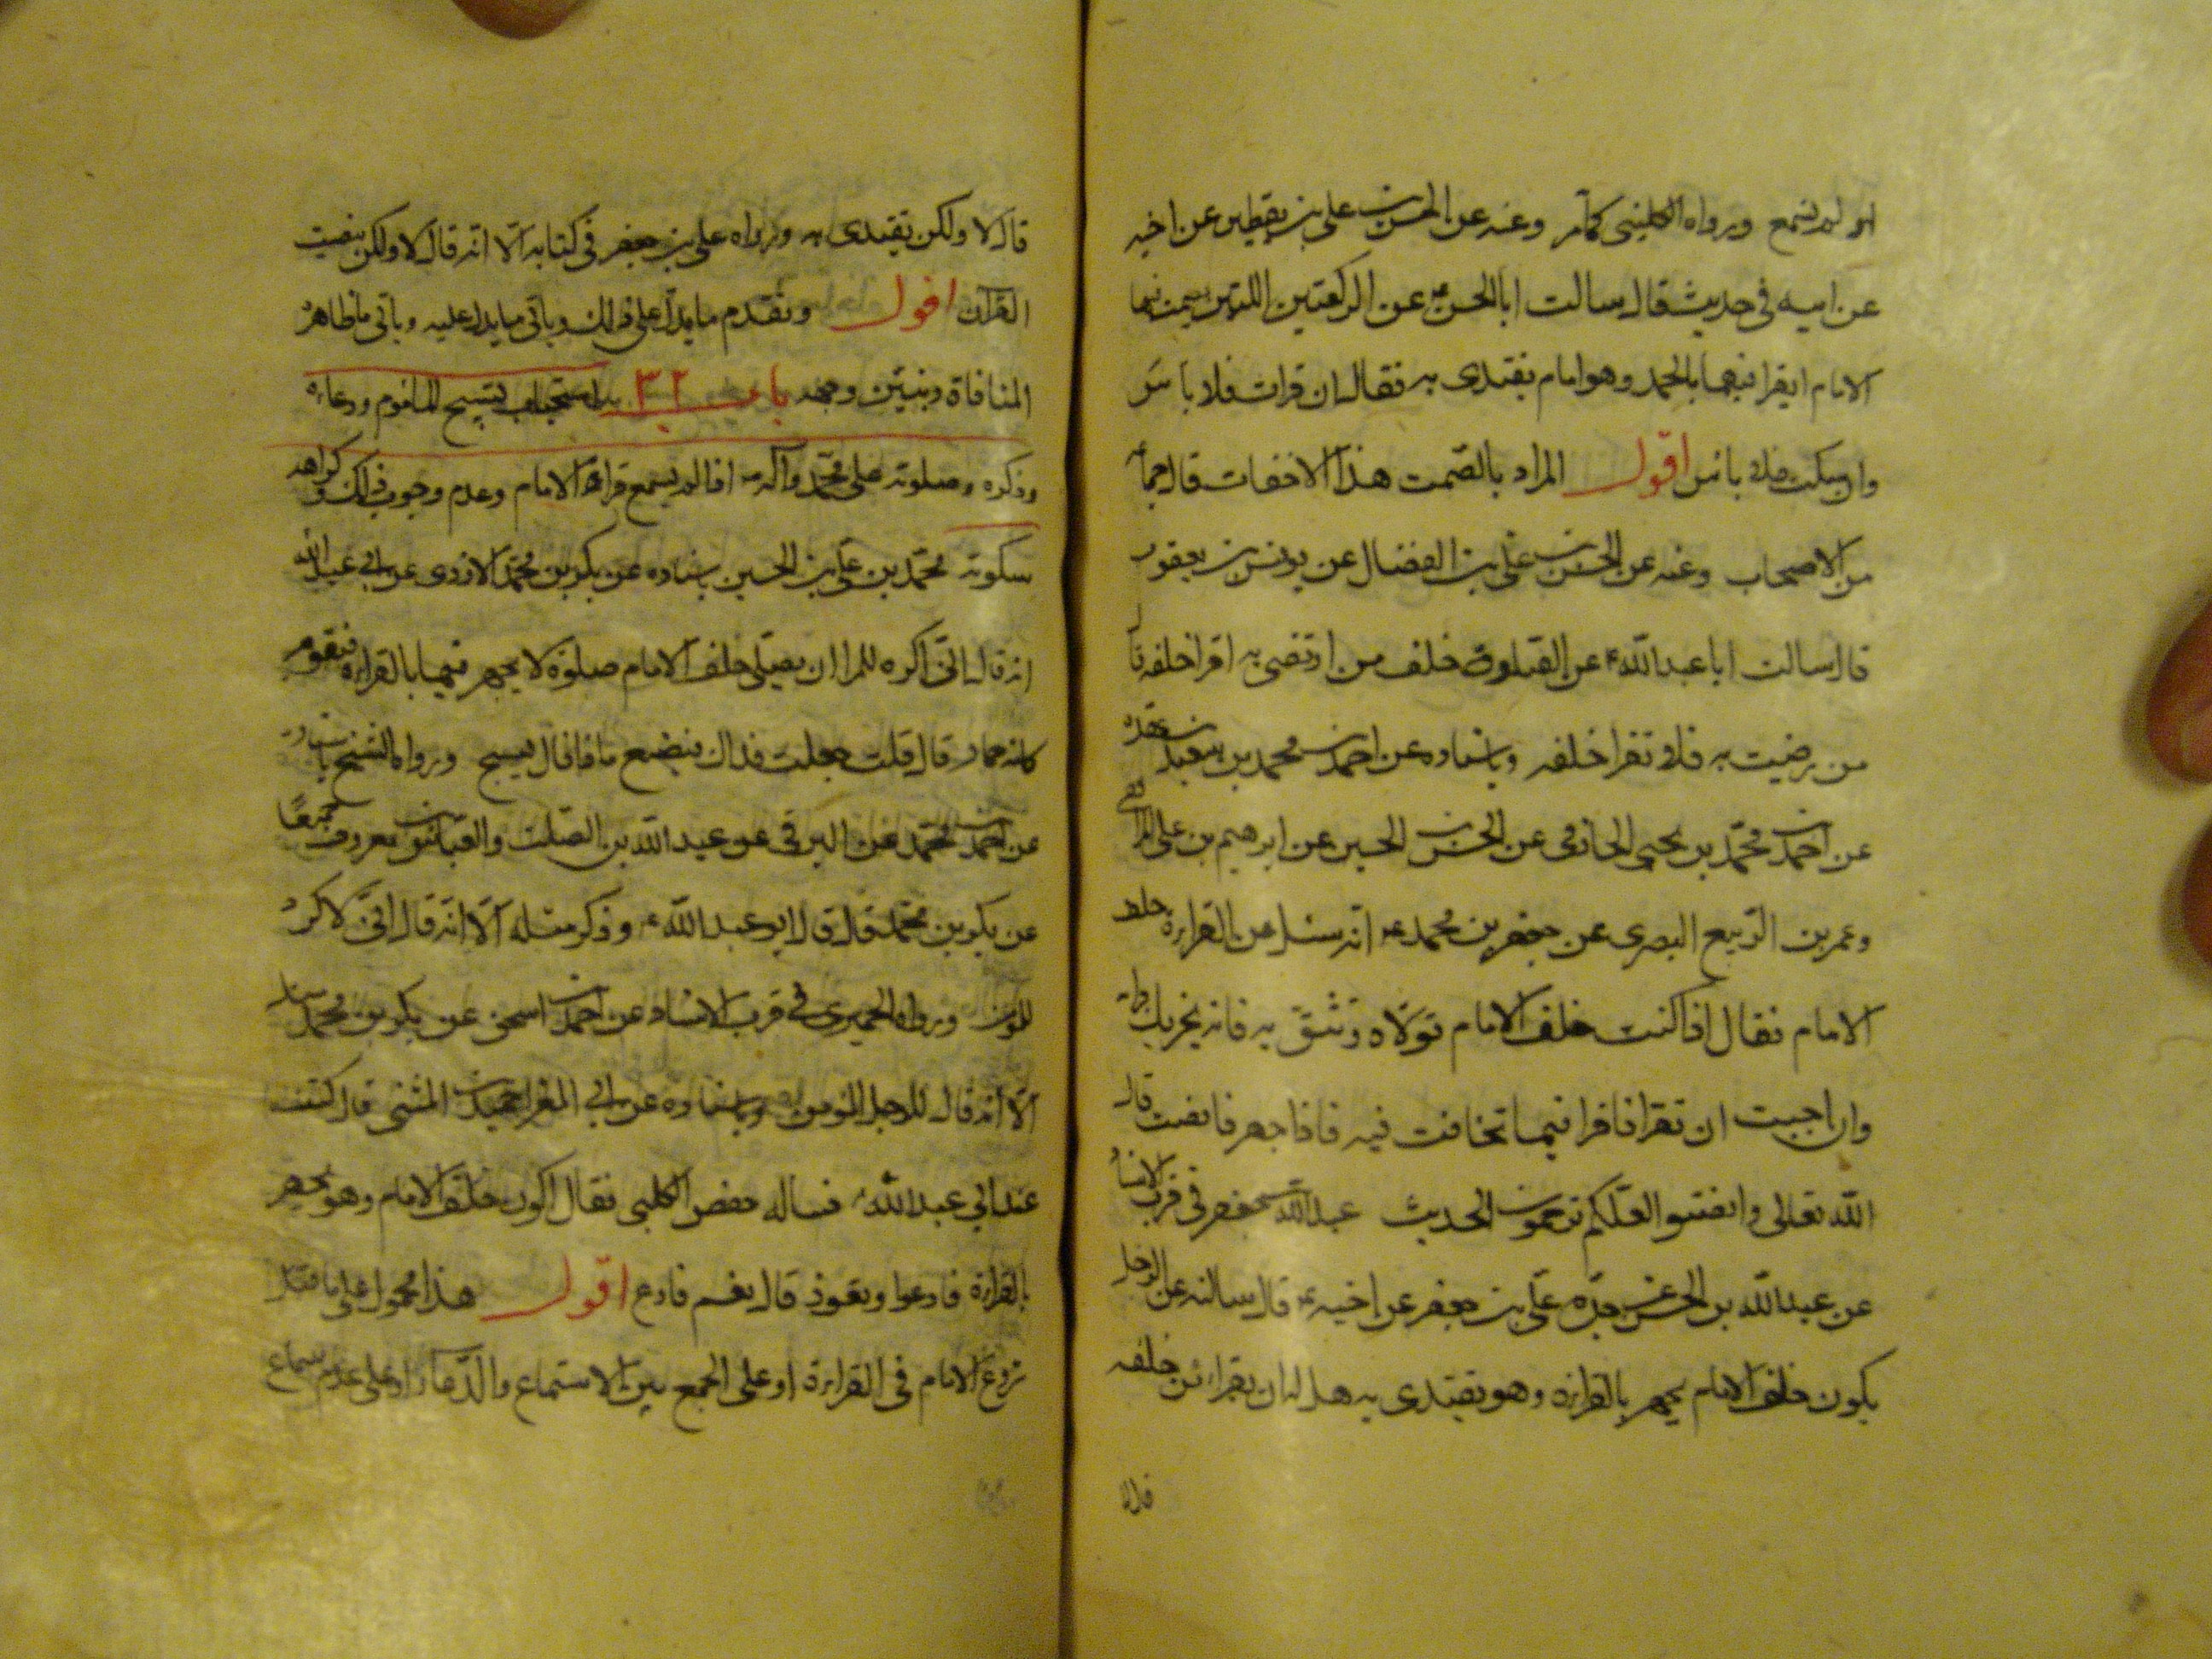 او لم تسمع ورواه الكلينى كما مر وعنه عن الحسن بن على بن يقطين عن اخيه
عن ابيه فى حديث قال سالت ابا الحسن ع عن الركعتين اللتين يصمت فيهما
الامام ايقرا فيهما بالحمد وهو امام يقتدى به فقال ان قرات فلا باس
وان سكت فلا باس اقول المراد بالصمت هنا الاخفات قاله جماعة
من الاصحاب وعنه عن الحسن بن على بن الفضال عن يونس بن يعقوب
قال سالت ابا عبد الله ع عن الصلوة خلف من ارتضى به اقرا خلفه قا
من رضيت به فلا تقرا خلفه وباسناده عن احمد بن محمد بن سعيد بن عقده
عن احمد بن محمد بن يحيى الخازمى عن الحسن بن الحسين عن ابرهيم بن على المرافقى
وعمر بن الربيع البصرى عن جعفر بن محمد ع انه سئل عن القراءة خلف
الامام فقال اذا كنت خلف الامام تولاه وتثق به فانه يجزيك قراءته
وان احببت ان تقرا فاقرا فيما تخافت فيه فاذا جهر فانصت قال
الله تعالى وانصتوا لعلكم ترحمون الحديث عبد الله بن جعفر فى قرب الاسناد
عن عبد الله بن الحسن عن جده على بن جعفر عن اخيه ع قال سالته عن الرجل
يكون خلف الامام يجهر بالقراءة وهو يقتدى به هل له ان يقرا من خلفه
قال لا
قال لا ولكن يقتدى به ورواه على بن جعفر فى كتابه الا انه قال لا ولكن ينصت
القرآن اقول وتقدم ما يدل على ذلك وياتى ما يدل عليه وياتى ما ظاهره
المنافاة ونبين وجهه باب ٣٢ استحباب تسبيح الماموم ودعاءه
وذكره وصلوته على محمد وآله اذا لم يسمع قراءة الامام وعدم وجوب ذلك وكراهة
سكوته محمد بن على بن الحسين باسناده عن بكر بن محمد الازدى عن ابى عبد الله
انه قال انى اكره للمرا ان يصلى خلف الامام صلوة لا يجهر فيها بالقراءة فيقوم
كانه حمار قال قلت جعلت فداك فيصنع ماذا قال يسبح ورواه الشيخ باسناده
عن احمد بن محمد عن البرقى عن عبد الله بن الصلت والعباس بن معروف جميعا
عن بكر بن محمد قال قال ابو عبد الله ع وذكر مثله الا انه قال انى لاكره
للمؤمن ورواه الحميرى فى قرب الاسناد عن احمد بن اسحق عن بكر بن محمد مثله
الا انه قال للرجل المؤمن وباسناده عن ابى المغرا حميد بن المثنى قال كنت
عند ابى عبد الله ع فساله حفص الكلبى فقال اكون خلف الامام وهو يجهر
بالقراءة فادعوا وتعوذ قال نعم فادع اقول هذا محمول على ما قبل
شروع الامام فى القراءة او على الجمع بين الاستماع والدعاء او على عدم سماع